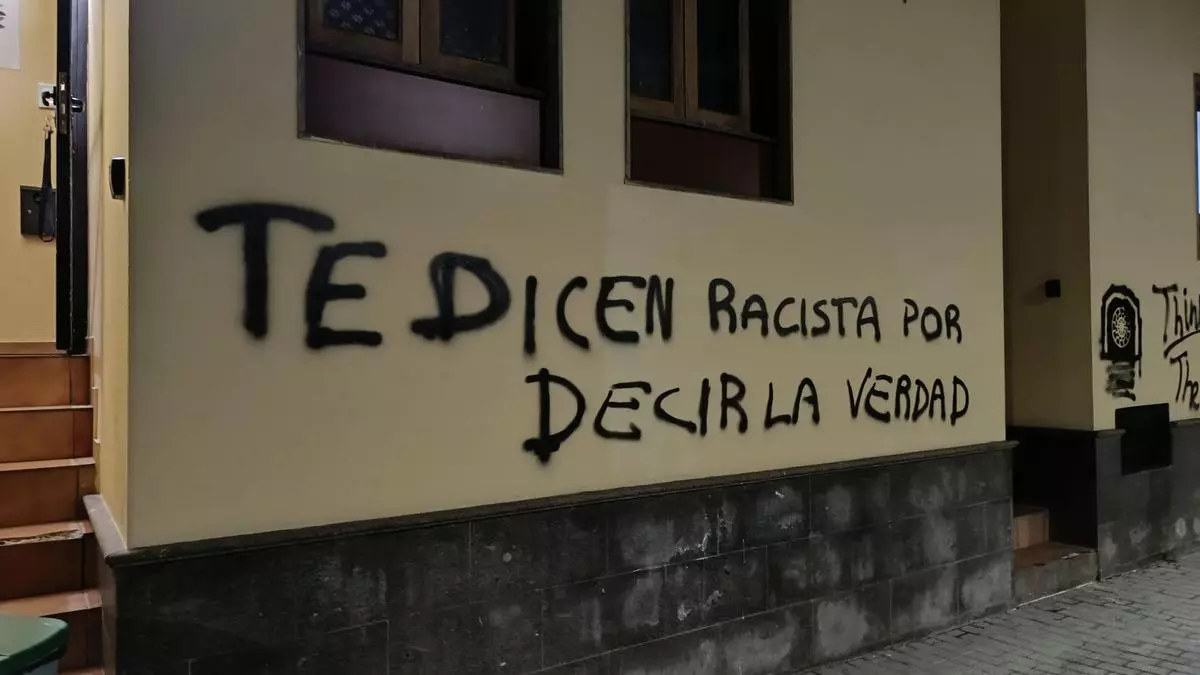 TE DICEN RACISTA POR
DECIR LA VERDAD
The